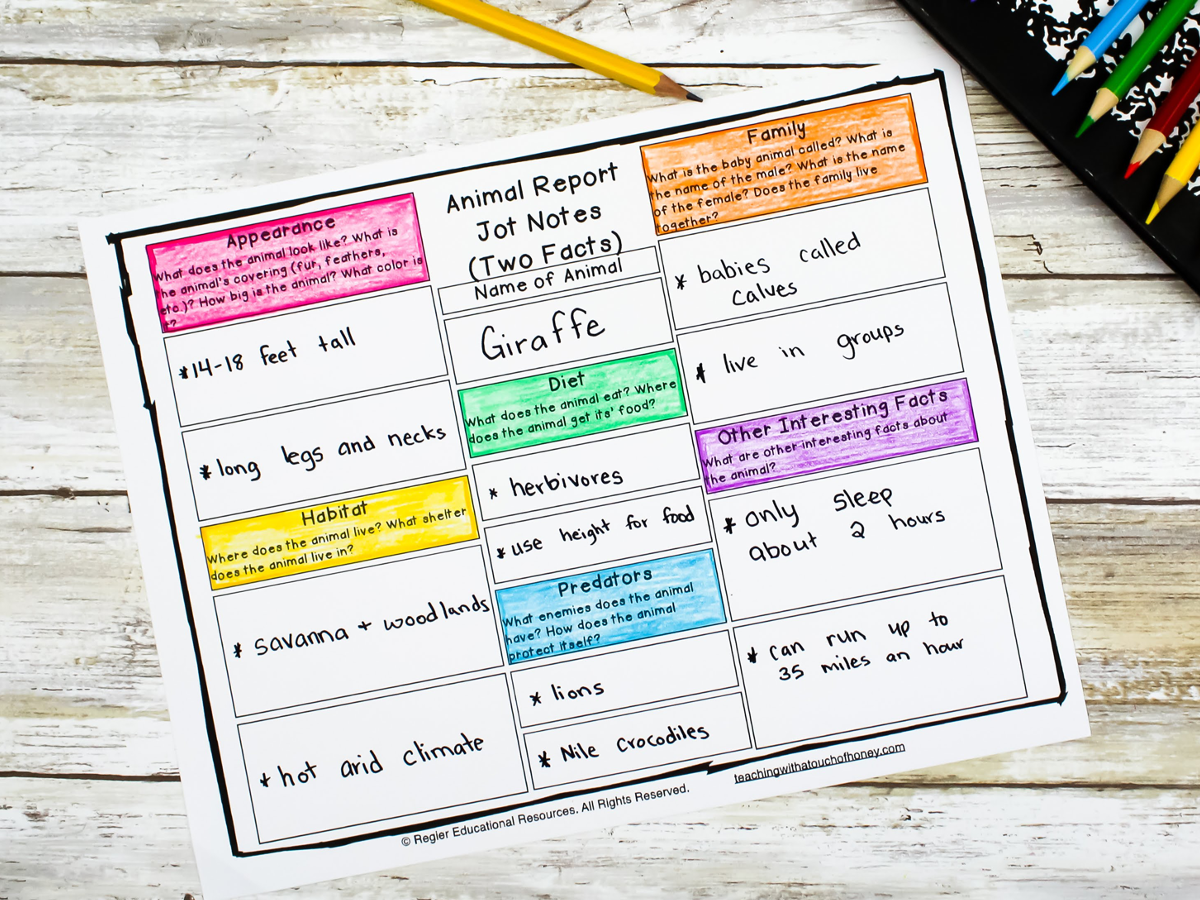 Appearance
What does the animal look like? What is
the animal's covering (fur, feathers,
etc.)? How big is the animal? What color is
it?
*14-18 feet tall
*long legs and necks
Habitat
Where does the animal live? What shelter
does the animal live in?
* savanna + woodlands
* hot arid climate
Animal Report
Jot Notes
(Two Facts)
Name of Animal
Giraffe
Diet
What does the animal eat? Where
does the animal get its' food?
* herbivores
* use height for food
Predators
What enemies does the animal
have? How does the animal
protect itself?
* lions
* Nile Crocodiles
Family
What is the baby animal called? What is
the name of the male? What is the name
of the female? Does the family live
together?
* babies called
calves
* live in groups
Other Interesting Facts
What are other interesting facts about
the animal?
* only sleep
about 2 hours
* can run up to
35 miles an hour
© Regier Educational Resources. All Rights Reserved.
teachingwithatouchofhoney.com